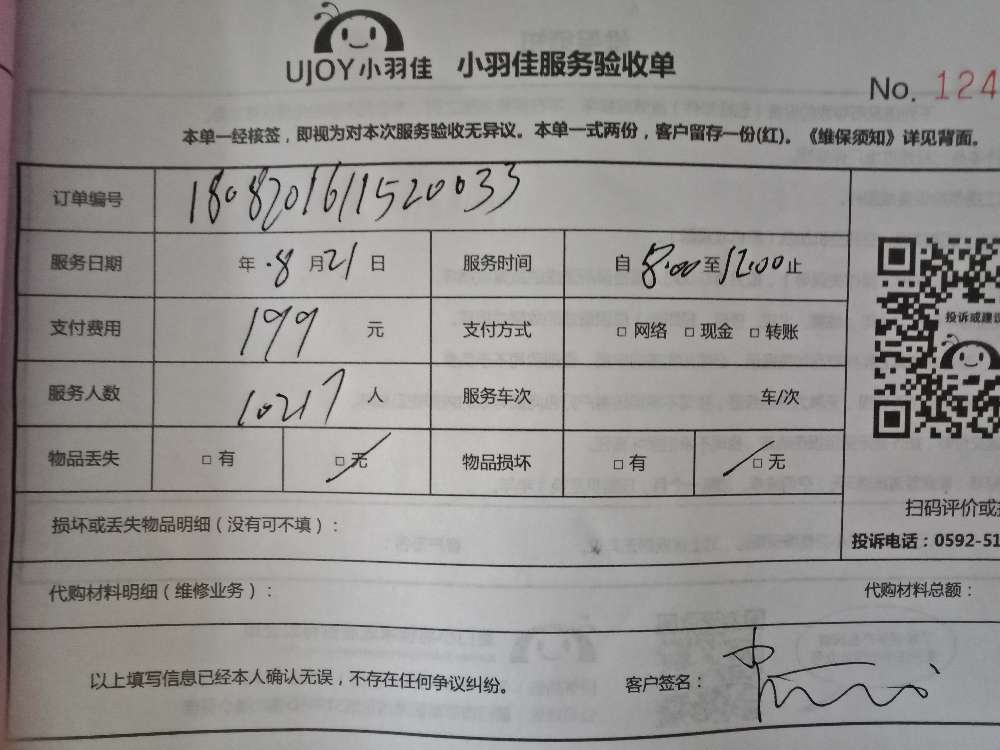 UJOY小羽佳 小羽佳服务验收单
No. 124
本单一经核签，即视为对本次服务验收无异议。本单一式两份，客户留存一份(红)。《维保须知》详见背面。
订单编号 1808201611520033
服务日期 年 8 月 21 日 服务时间 自 8:00 至 12:00 止
支付费用 199 元 支付方式 □ 网络 □ 现金 □ 转账
投诉或建议
服务人数 10217 人 服务车次 车/次
物品丢失 □ 有 □ 无 物品损坏 □ 有 □ 无
扫码评价或
损坏或丢失物品明细（没有可不填）：
投诉电话：0592-51
代购材料明细（维修业务）： 代购材料总额：
以上填写信息已经本人确认无误，不存在任何争议纠纷。 客户签名：